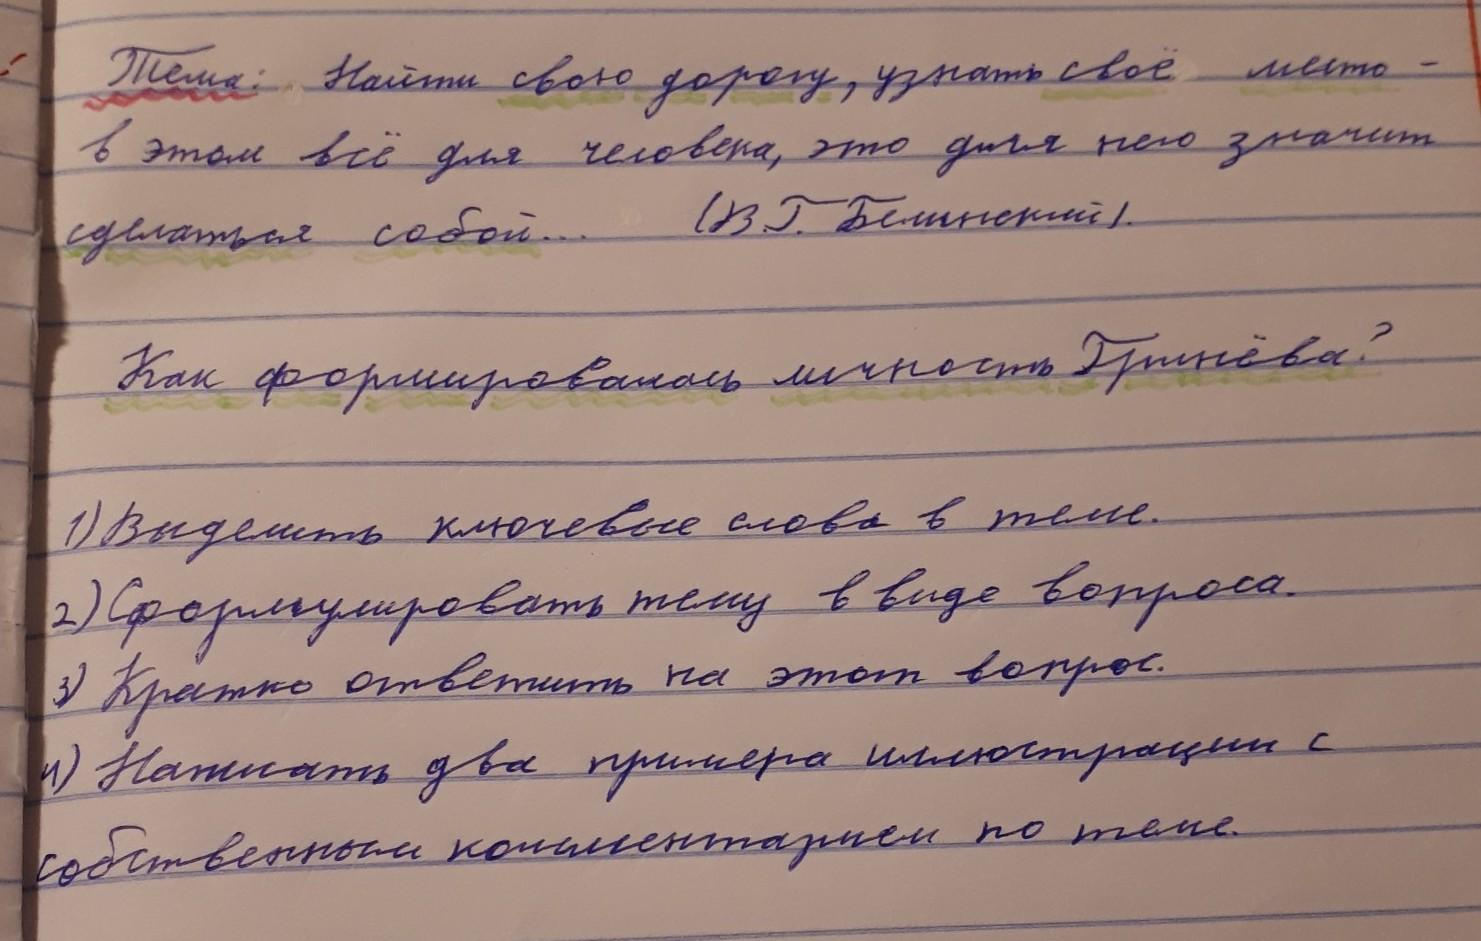 Тема: Найти свою дорогу, узнать своё место -
в этом всё для человека, это для него значит
сделаться собой... (В.Г. Белинский).
Как формировалась личность Гринёва?
1) Выделить ключевые слова в теме.
2) Сформулировать тему в виде вопроса.
3) Кратко ответить на этот вопрос.
4) Написать два примера иллюстрации с
собственным комментарием по теме.